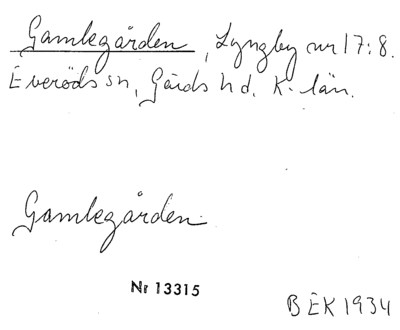 Gamlegården, Lyngby nr 17:8.
Everöds sn, Gärds hd. K-län.
Gamlegården.
Nr 13315
B EK 1934